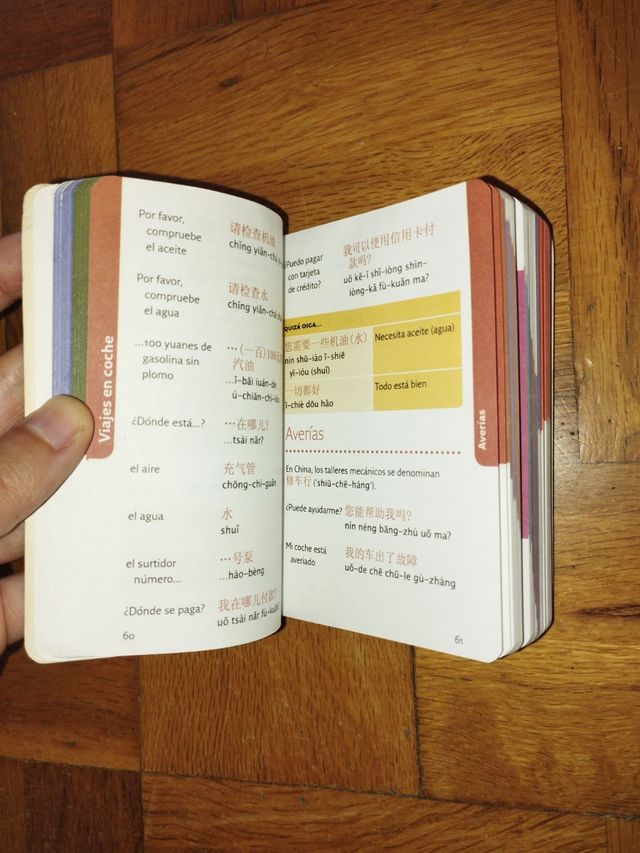 Viajes en coche
Por favor,
compruebe
el aceite
请检查机油
chǐng yiǎn-chá
Por favor,
compruebe
el agua
请检查水
chǐng yiǎn-chá
...100 yuanes de
gasolina sin
plomo
…(一百)100元
汽油
...ī-bǎi iuán-de
ú-chiān-chì-ióu
¿Dónde está...?
…在哪儿?
...tsài nǎr?
el aire
充气管
chōng-chì-guǎn
el agua
水
shuǐ
el surtidor
número...
…号泵
...hào-bèng
¿Dónde se paga?
我在哪儿付款?
uǒ tsài nǎr fù-kuǎn?
60
¿Puedo pagar
con tarjeta
de crédito?
我可以使用信用卡付
款吗?
uǒ kě-ǐ shǐ-iòng shìn-
iòng-kǎ fù-kuǎn ma?
QUIZÁ OIGA...
您需要一些机油(水)
nín shū-iào ī-shiē
yī-ióu (shuǐ)
Necesita aceite (agua)
一切都好
ī-chiè dōu hǎo
Todo está bien
Averías
En China, los talleres mecánicos se denominan
修车行 ('shiū-chē-háng').
¿Puede ayudarme?
您能帮助我吗?
nín néng bāng-zhù uǒ ma?
Mi coche está
averiado
我的车出了故障
uǒ-de chē chū-le gù-zhàng
61
Averías